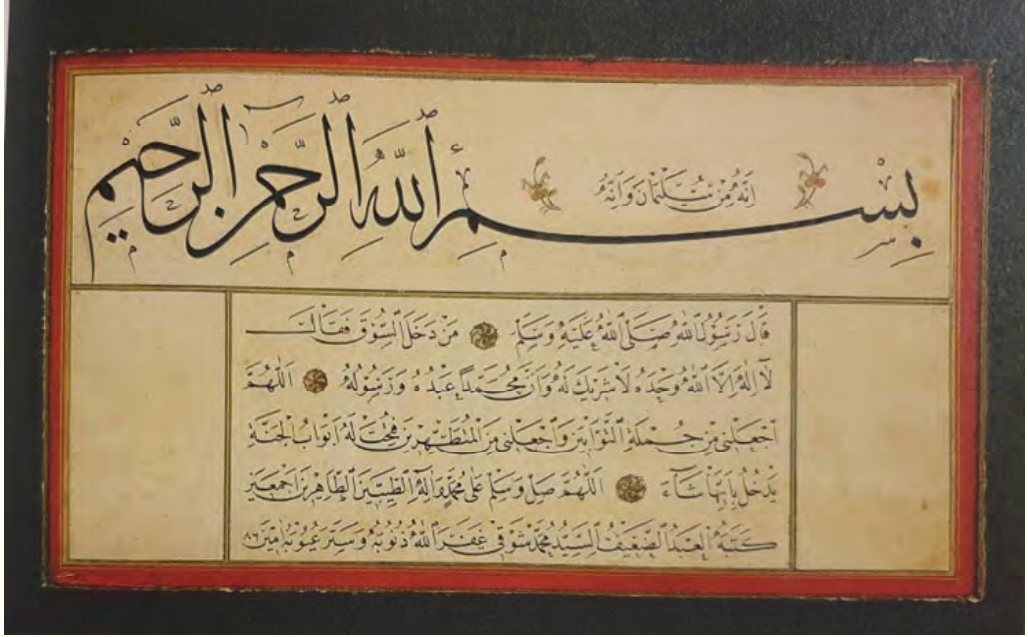 بِسْمِ اللّٰهِ الرَّحْمٰنِ الرَّحِيمِ
اِنَّهُ مِنْ سُلَيْمَانَ وَاِنَّهُ
قَالَ رَسُولُ اللّٰهِ صَلَّى اللّٰهُ عَلَيْهِ وَسَلَّمَ مَنْ دَخَلَ السُّوقَ فَقَالَ
لَا اِلٰهَ اِلَّا اللّٰهُ وَحْدَهُ لَا شَرِيكَ لَهُ وَاَنَّ مُحَمَّدًا عَبْدُهُ وَرَسُولُهُ اَللّٰهُمَّ
اجْعَلْنِى مِنْ جُمْلَةِ التَّوَّابِينَ وَاجْعَلْنِى مِنَ الْمُتَطَهِّرِينَ فُتِحَتْ لَهُ اَبْوَابُ الْجَنَّةِ
يَدْخُلُ بِاَيِّهَا شَآءَ اَللّٰهُمَّ صَلِّ وَسَلِّمْ عَلٰى مُحَمَّدٍ وَاٰلِهِ الطَّيِّبِينَ الطَّاهِرِينَ اَجْمَعِينَ
كَتَبَهُ الْعَبْدُ الضَّعِيفُ السَّيِّدُ مُحَمَّدْ شَوْقِى غَفَرَ اللّٰهُ ذُنُوبَهُ وَسَتَرَ عُيُوبَهُ اٰمِينَ